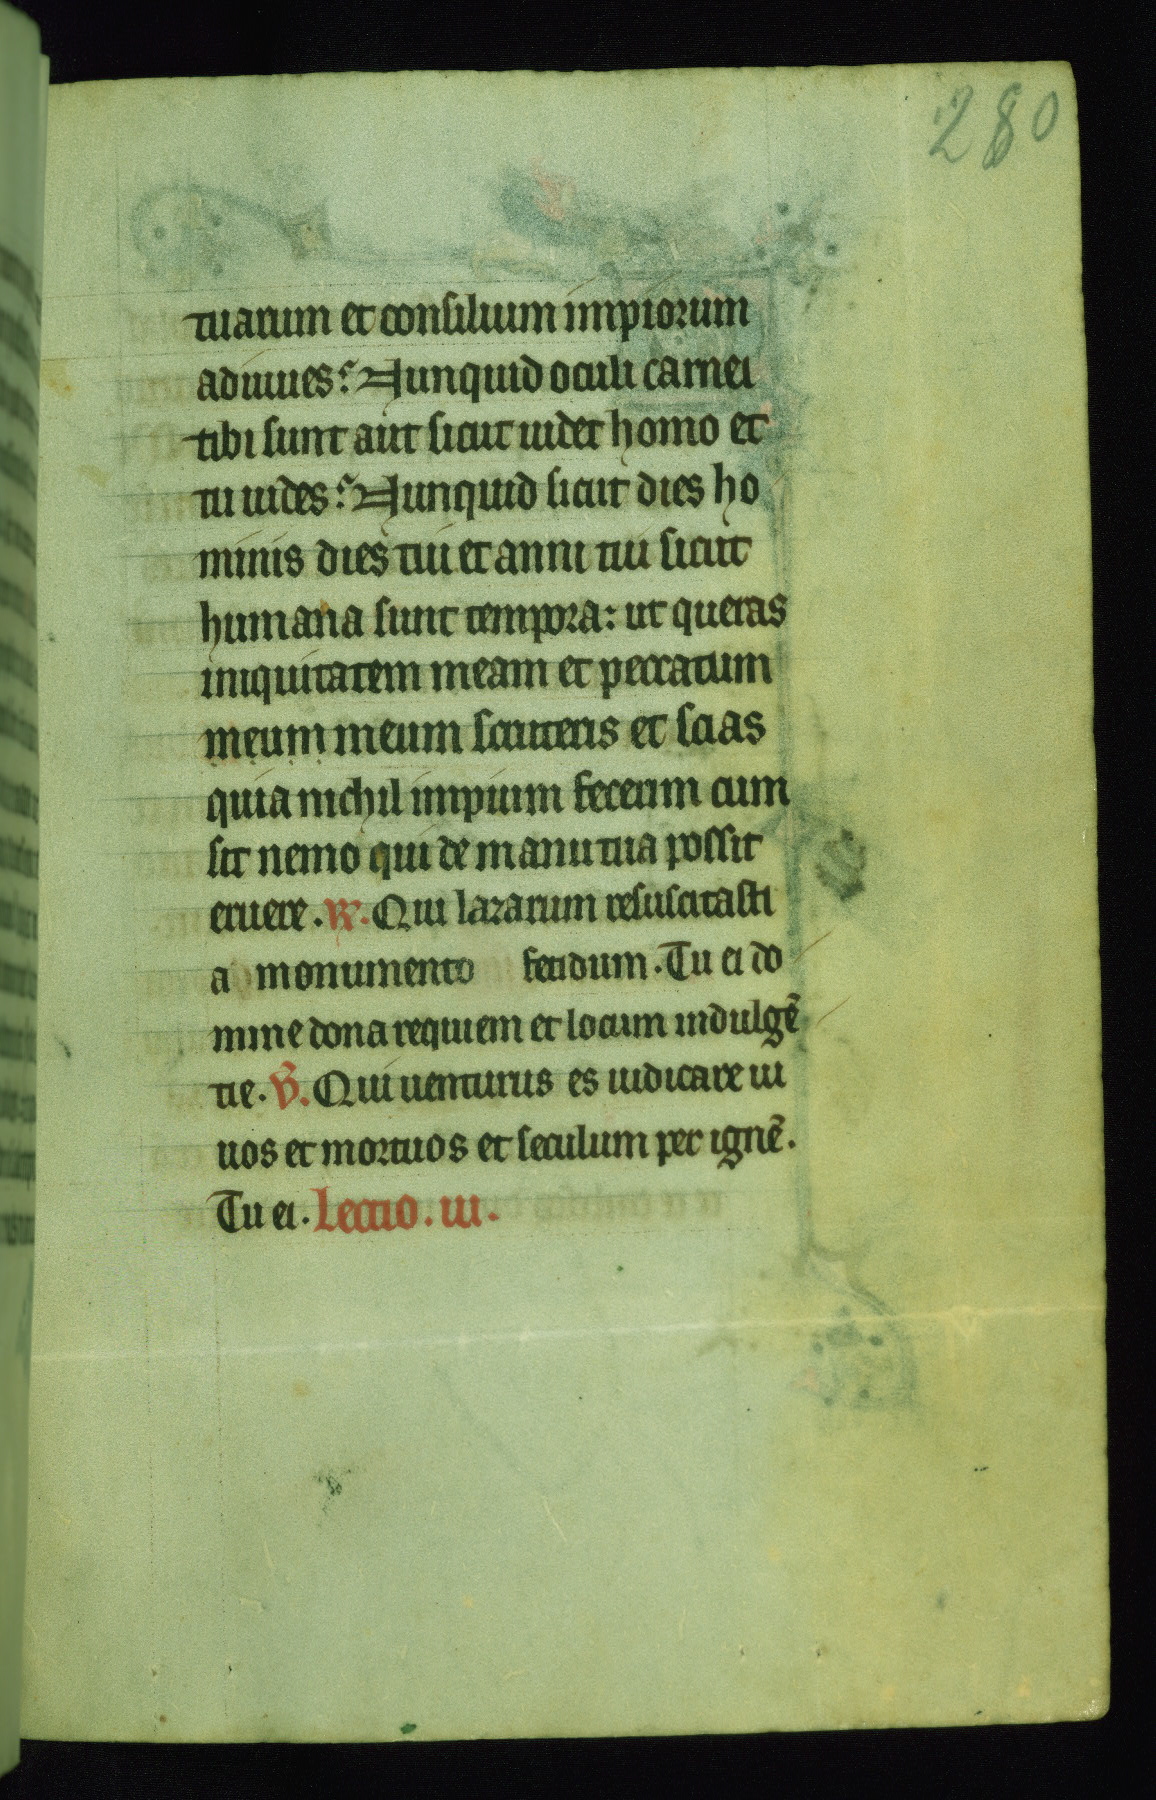 280
tuarum et consilium impiorum
adiuues? Nunquid oculi carnei
tibi sunt aut sicut uidet homo et
tu uides? Nunquid sicut dies ho
minis dies tui et anni tui sicut
humana sunt tempora: ut queras
iniquitatem meam et peccatum
meum meum scruteris et scias
quia nichil impium fecerim cum
sit nemo qui de manu tua possit
eruere. R. Qui lazarum resuscitasti
a monumento fetidum. Tu ei do
mine dona requiem et locum indulgē
tie. V. Qui uenturus es iudicare ui
uos et mortuos et seculum per ignē.
Tu ei. Lectio. iii.